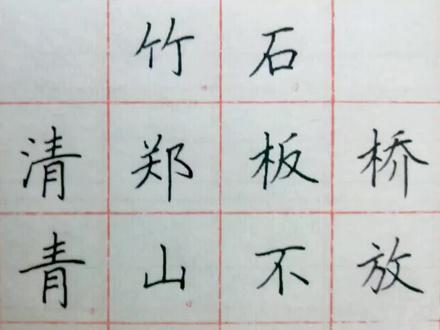 竹石
清郑板桥
青山不放